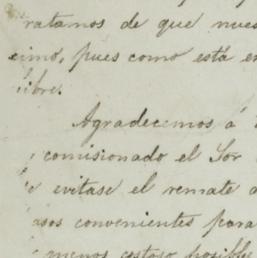 ratamos de que nues
cimo, pues como está en
libre.
Agradecemos á
comisionado el Sor
e evitase el remate a
asos convenientes para
menos costoso posible